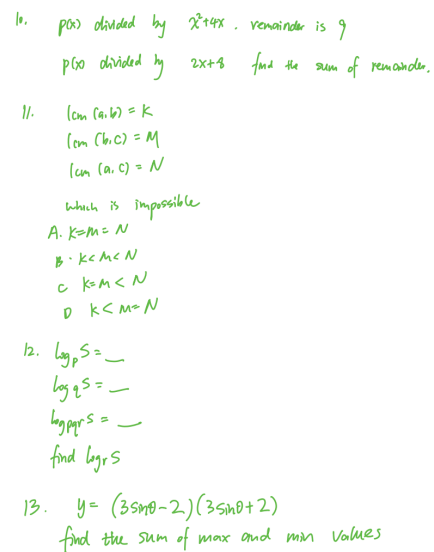 10. p(x) divided by x²+4x. remainder is 9
p(x) divided by 2x+8 find the sum of remainder.
11. lcm (a,b) = K
lcm (b,c) = M
lcm (a,c) = N
which is impossible
A. K=M=N
B. K<M<N
C K=M<N
D K<M=N
12. log_p S = __
log_q S = __
log_pqr S = __
find log_r S
13. y = (3sinθ-2)(3sinθ+2)
find the sum of max and min values